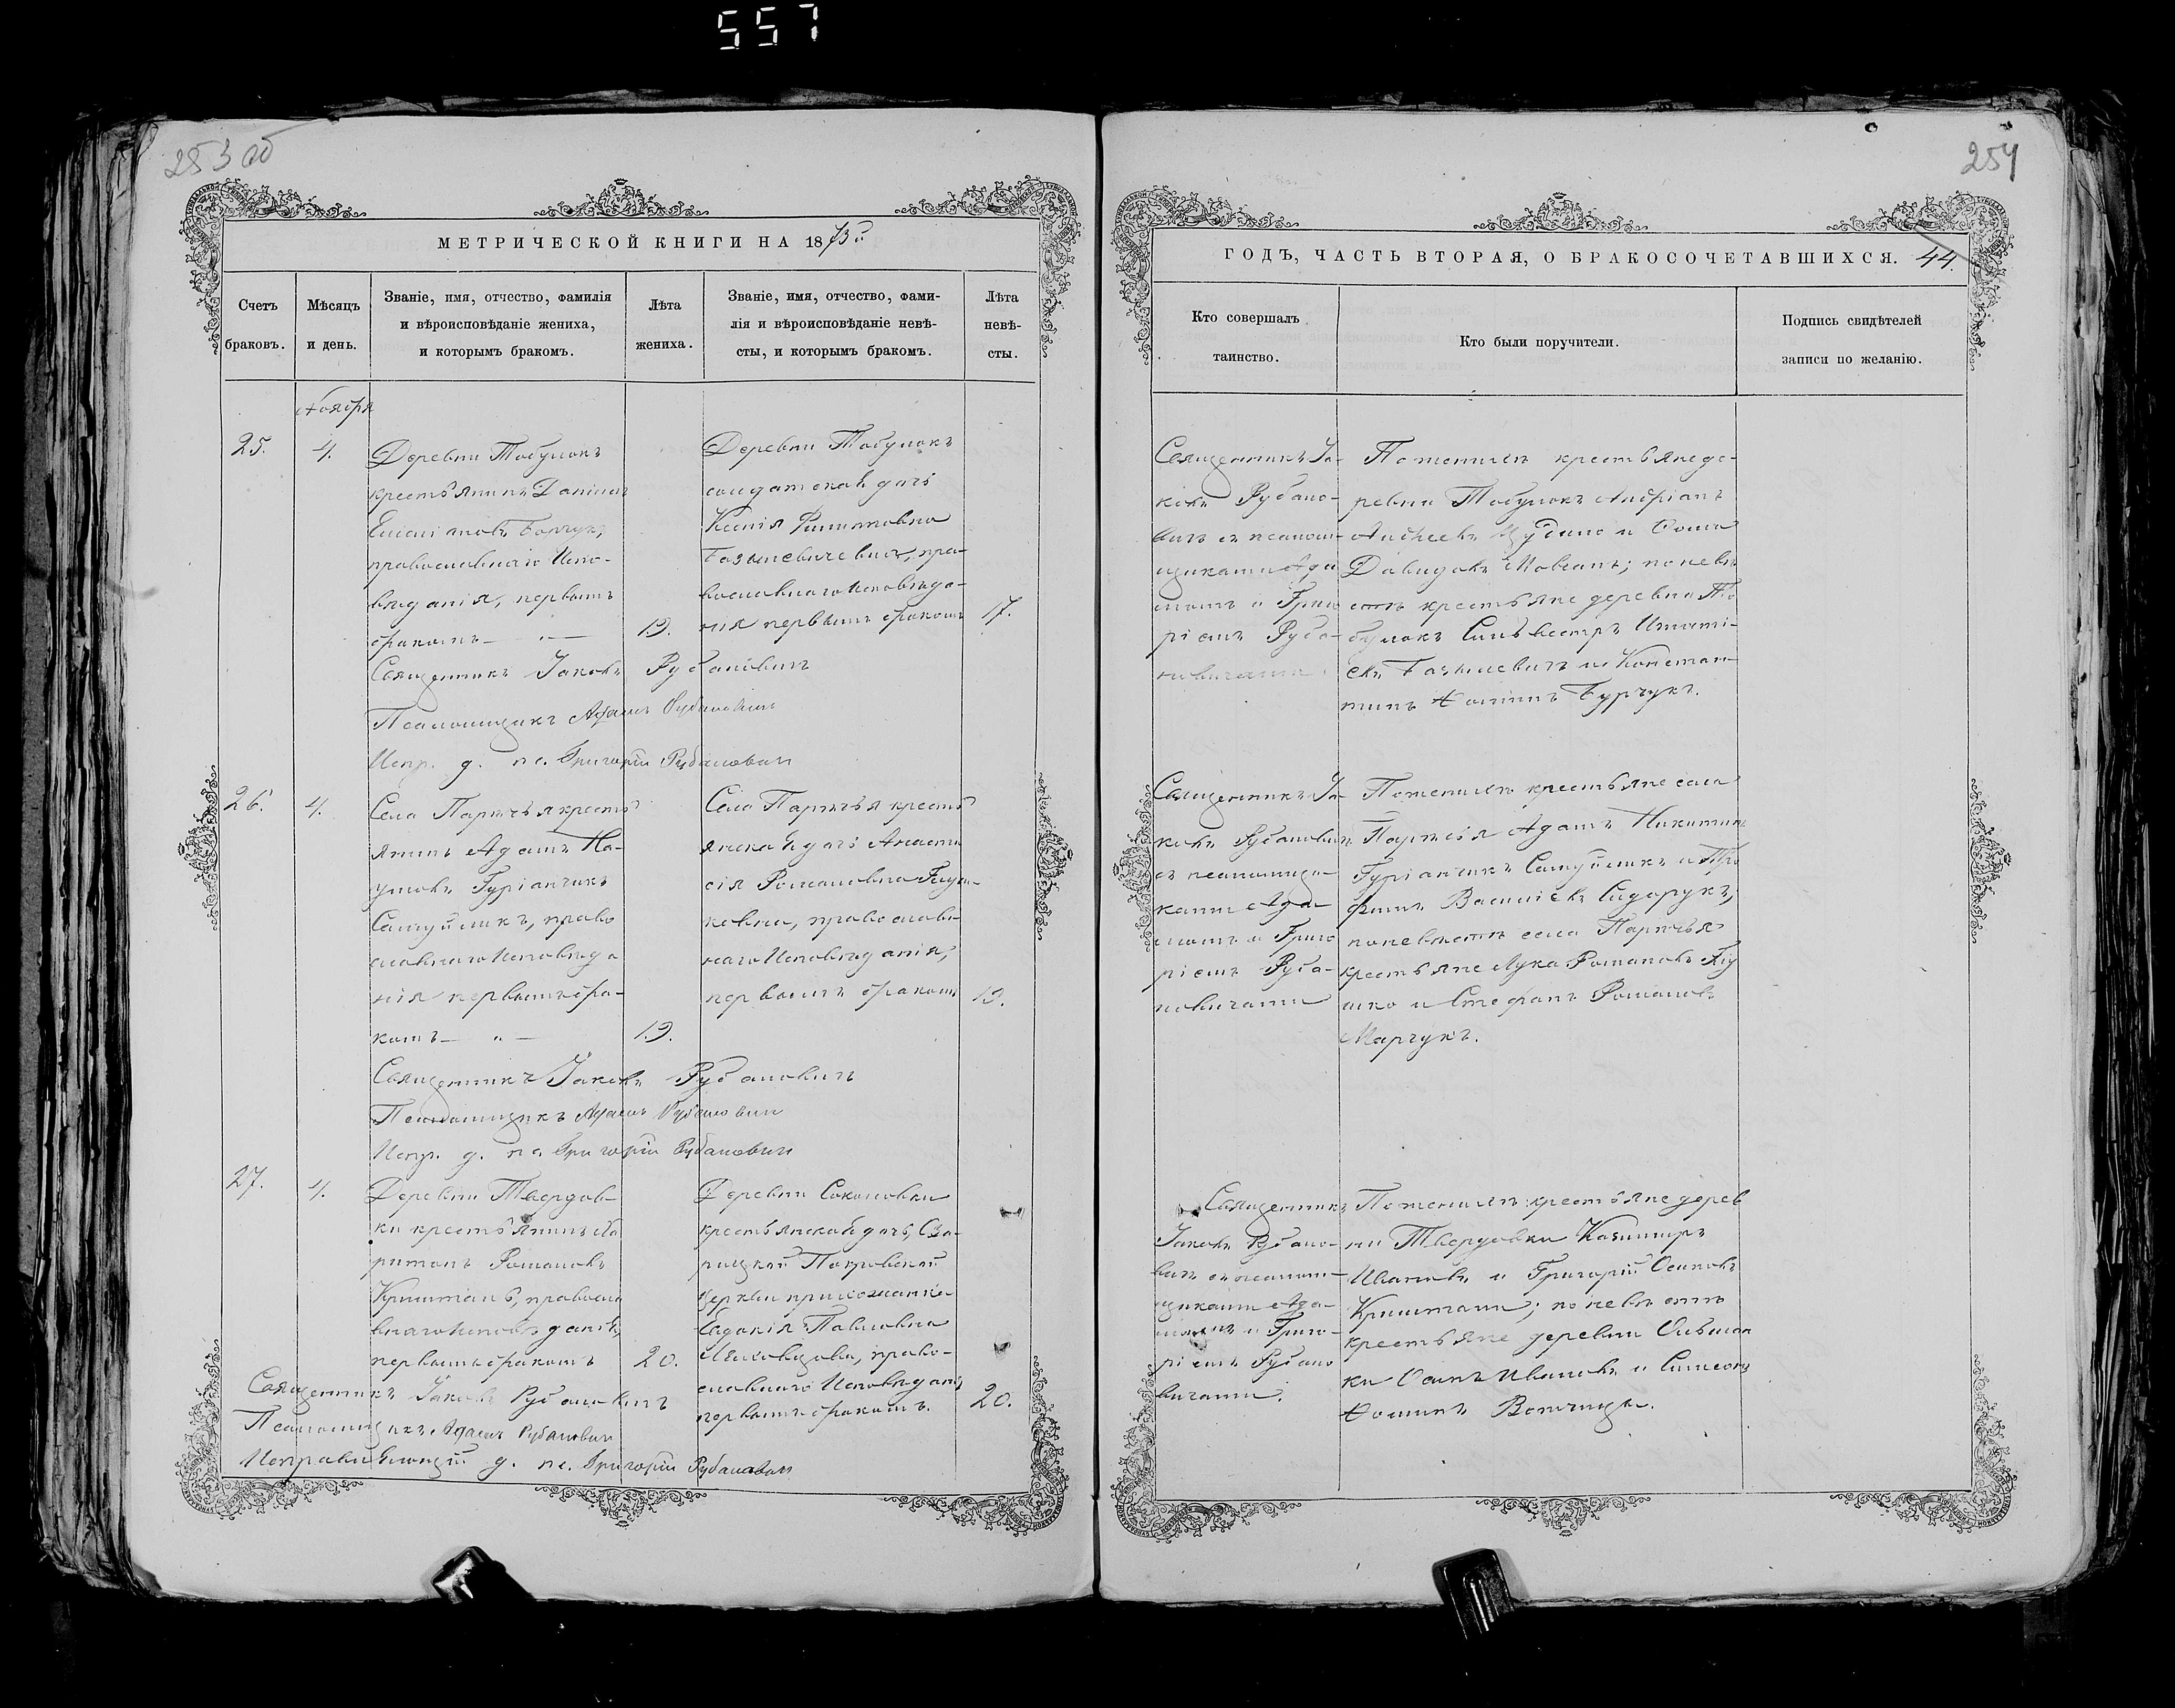 557
253 об
254
МЕТРИЧЕСКОЙ КНИГИ НА 1873й
Счетъ
браковъ.
Мѣсяцъ
и день.
Званіе, имя, отчество, фамилія
и вѣроисповѣданіе жениха,
и которымъ бракомъ.
Лѣта
жениха.
Званіе, имя, отчество, фами-
лія и вѣроисповѣданіе невѣ-
сты, и которымъ бракомъ.
Лѣта
невѣ-
сты.
Ноября
25.
4.
Деревни Тобулокъ
крестьянинъ Даніилъ
православнаго Испо-
вѣданія, первымъ
бракомъ — " —
19.
Деревни Тобулокъ
солдатская дочь
Ксенія
православнаго исповѣда-
нія первымъ бракомъ
17.
Священникъ Іаковъ Рубановичъ
Псаломщикъ Адамъ Рубановичъ
Испр. д. пс. Григорій Рубановичъ
26.
4.
Села Парѣчья кресть
янинъ Адамъ На-
умовъ Гуріанчикъ
Самуйликъ, право
славнаго Исповѣда
нія первымъ бра-
комъ — " —
19.
Села Парѣчья кресть
янская дочь Анаста
сія Романовна
православ-
наго Исповѣданія,
первымъ бракомъ
19.
Священникъ Іаковъ Рубановичъ
Псаломщикъ Адамъ Рубановичъ
Испр. д. пс. Григорій Рубановичъ
27.
4.
Деревни Твердов-
ки крестьянинъ Ха
ритонъ Романовъ
Криштань, правосла
внаго Исповѣданія,
первымъ бракомъ
20.
Деревни Соколовки
крестьянская дочь, Сва-
рицкой Покровской
церкви прихожанка
Павловна
право-
славнаго Исповѣданія
первымъ бракомъ.
20.
Священникъ Іаковъ Рубановичъ
Псаломщикъ Адамъ Рубановичъ
Исправляющій д. пс. Григорій Рубановичъ
ГОДЪ, ЧАСТЬ ВТОРАЯ, О БРАКОСОЧЕТАВШИХСЯ. 44.
Кто совершалъ
таинство.
Кто были поручители.
Подпись свидѣтелей
записи по желанію.
Священникъ Іа-
ковъ Рубано-
вичъ съ псалом-
щиками Ада
момъ и Григо
ріемъ Руба-
новичами.
По женихѣ крестьяне де-
ревни Тобулокъ Андріанъ
Андреевъ и Ѳома
Давидовъ Мовчанъ; по невѣ
стѣ крестьяне деревни То
булокъ Сильвестръ Игнаті-
евъ Базылевичъ и Констан-
тинъ Ѳоминъ Бурчукъ.
Священникъ Іа-
ковъ Рубановичъ
съ псаломщи-
ками Ада-
момъ и Григо
ріемъ Руба-
новичами
По женихѣ крестьяне села
Парѣчья Адамъ Никитинъ
Гуріанчикъ Самуйликъ и Тро
фимъ Василіевъ Сидорукъ,
по невѣстѣ села Парѣчья
крестьяне Лука Романовъ
и Стефанъ Романовъ
Марчукъ.
Священникъ
Іаковъ Рубано-
вичъ съ псалом-
щиками Ада-
момъ и Григо-
ріемъ Рубано
вичами.
По женихѣ крестьяне дерев
ни Твердовки Казимиръ
Ивановъ и Григорій Осиповъ
Криштани; по невѣстѣ
крестьяне деревни Ольшан
ки Осипъ Ивановъ и Симеонъ
Ѳоминъ